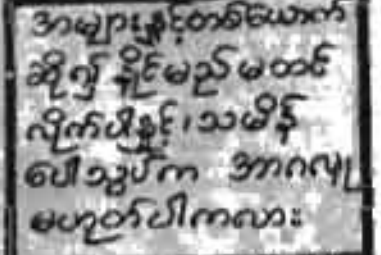 အများနှင့်တစ်ယောက်
ဆို၍ နိုင်မည် မထင်
လိုက်ပါနှင့်၊ သမိန်
ပေါသွပ်က အာဂလူ
မဟုတ်ပါကလား